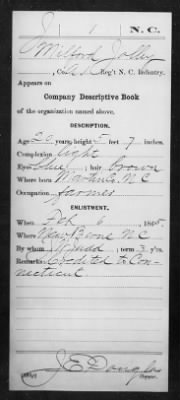 J 1 N.C.
Milford Jolly
, Co. , 1 Reg't N. C. Infantry.
Appears on
Company Descriptive Book
of the organization named above.
DESCRIPTION.
Age 20 years; height 5 feet 7 inches.
Complexion Light
Eyes Blue; hair Brown
Where born N.C
Occupation farmer
ENLISTMENT.
When Feb 6, 1865.
Where New Berne N.C
By whom Judd; term 3 y'rs.
Remarks: Credited to Con-
necticut.
J.E. Douglas